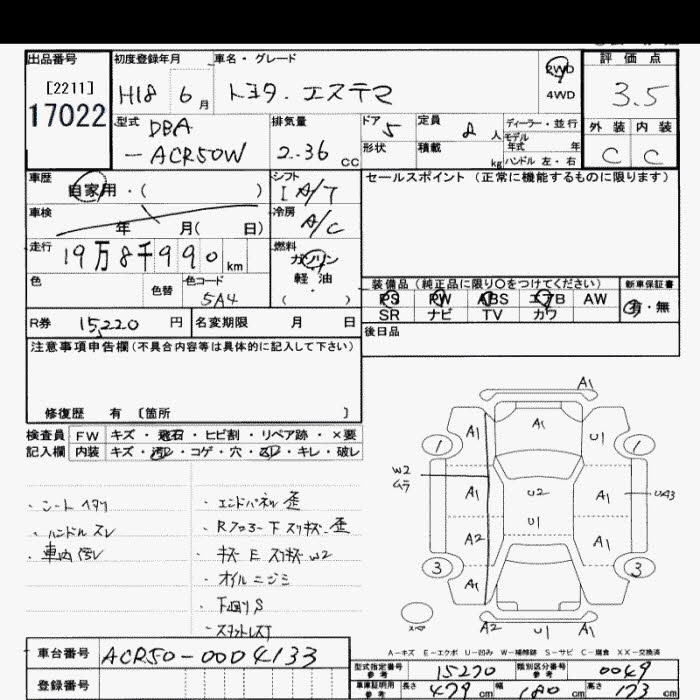 出品番号 初度登録年月 車名・グレード 2WD 評価点
[2211] H18 6月 トヨタ・エスティマ 4WD 3.5
17022 型式 DBA 排気量 ドア 5 定員 8人 ディーラー・並行 外装 内装
-ACR50W 2.36 cc 形状 積載 kg モデル年式 年 C C
ハンドル 左・右
車歴 自家用・( ) シフト I A/T セールスポイント(正常に機能するものに限ります)
車検 年 月( 日) 冷房 A/C
走行 19万8千990 km 燃料 ガソリン
色 色替 色コード 5A4 軽・油 ( )
装備品(純正品に限り○をつけてください) 新車保証書
PS PW ABS エアB AW 有・無
SR ナビ TV カワ
R券 15,220 円 名変期限 月 日 後日品
注意事項申告欄(不具合内容等は具体的に記入して下さい)
修復歴 有 〔箇所 〕
検査員 FW キズ・飛石・ヒビ割・リペア跡・×要
記入欄 内装 キズ・汚レ・コゲ・穴・スレ・キレ・破レ
・シートヘタリ
・ハンドルスレ
・車内汚レ
・エンドパネル歪
・Rフロアー下スリキズ、歪
・キズEスリキズW2
・オイルニジミ
・下回りS
・スタットレスT
A1
A1 A1 U1
1 1
W2
ムラ
A1 U2 A1 UA3
U1
A2 A1
3 3
A1
A2 U1 A1
A-キズ E-エクボ U-凹み W-補修跡 S-サビ C-腐食 XX-交換済
車台番号 ACR50-0004133
登録番号
型式指定番号 参考 15270 類別区分番号 参考 0049
車庫証明用 参考 長さ 479 cm 幅 180 cm 高さ 173 cm